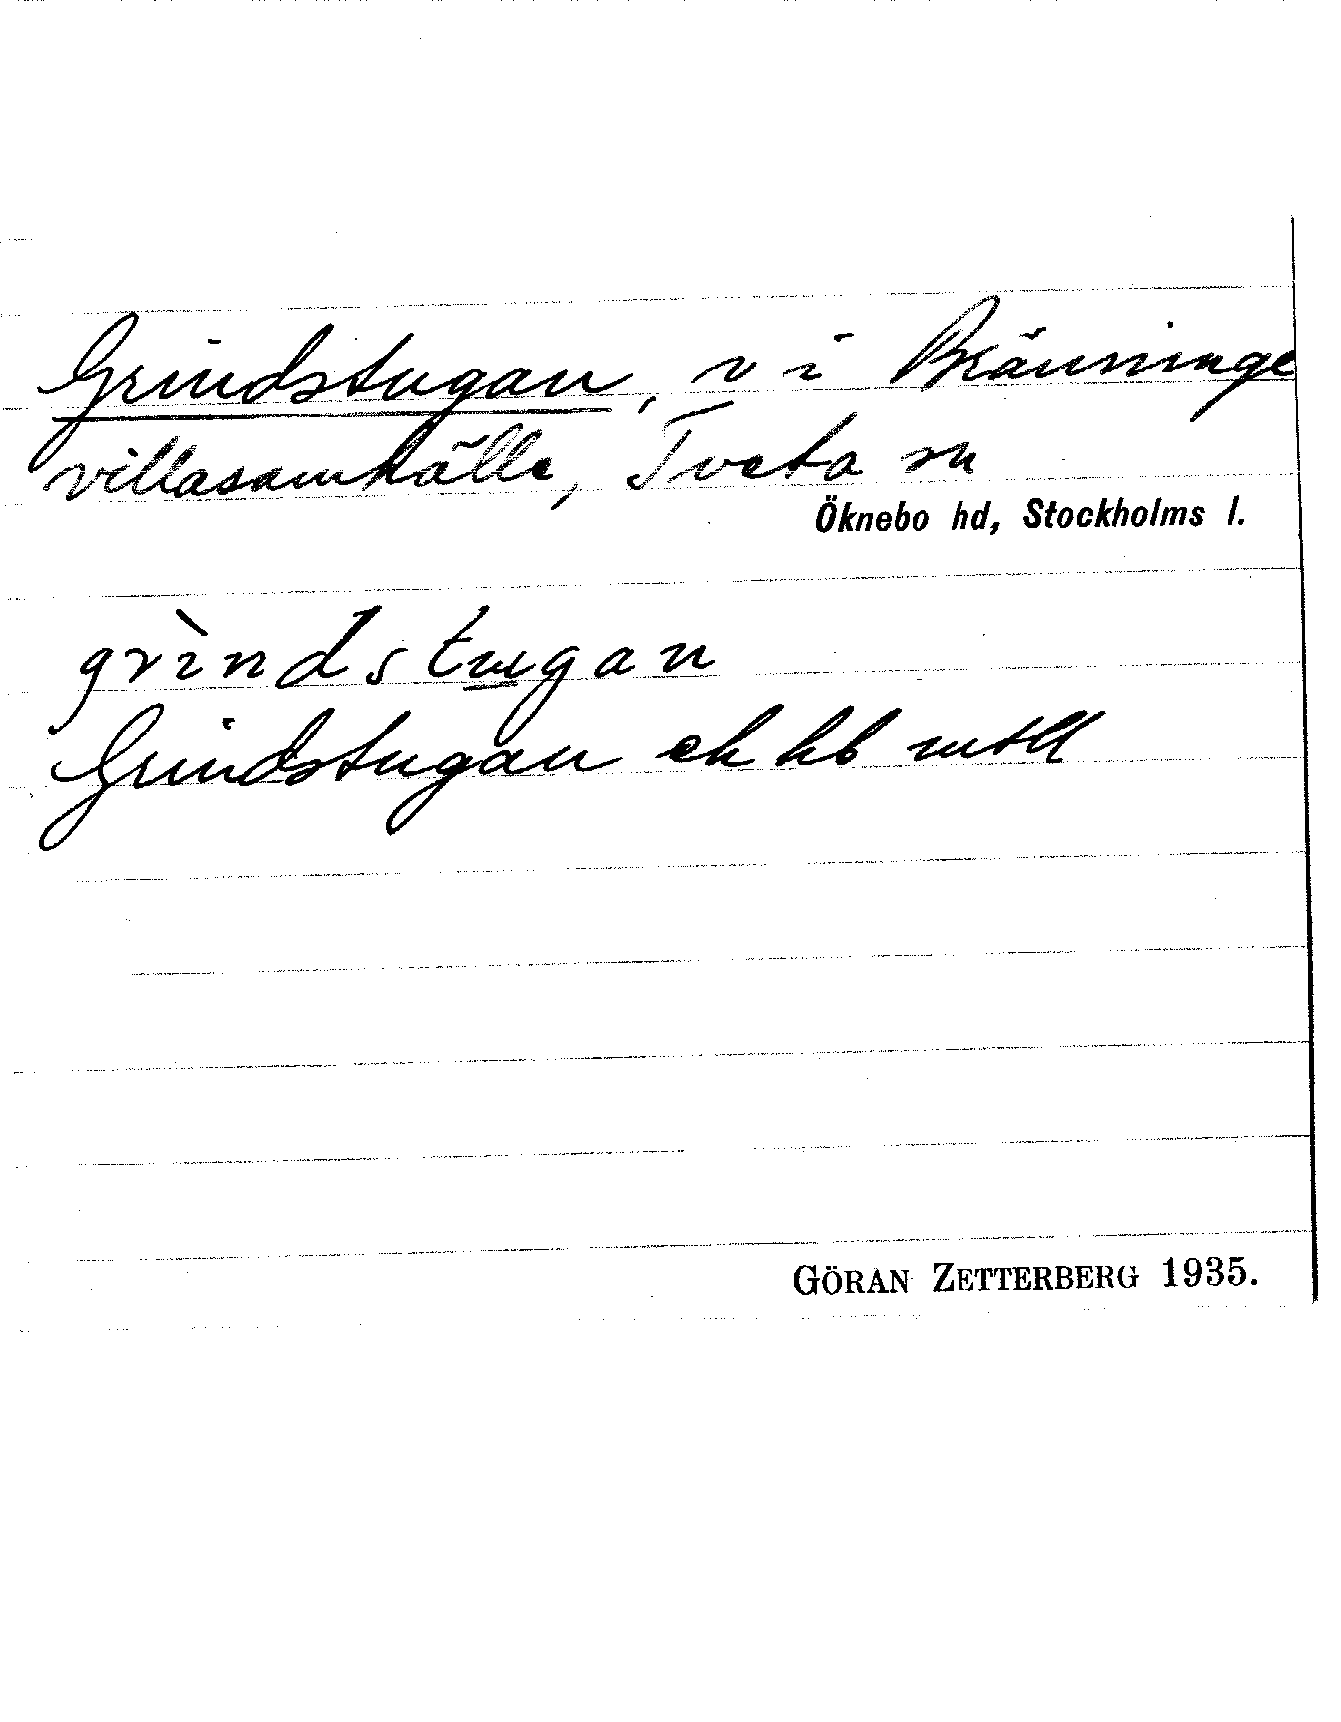 Grindstugan, v i Bränninge
villasamhälle, Tveta sn
Öknebo hd, Stockholms l.
grìndstugan
Grindstugan ek hb mtll
GÖRAN ZETTERBERG 1935.